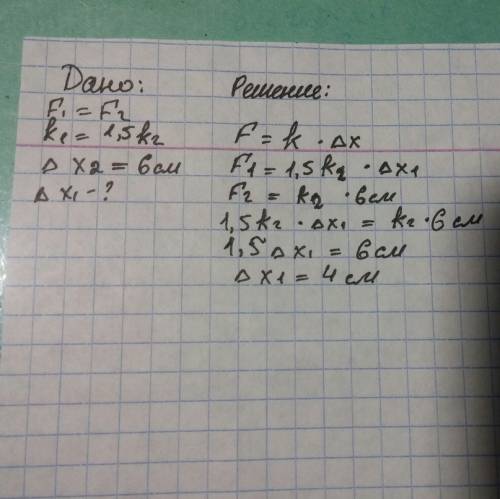 Дано:
F₁ = F₂
k₁ = 1,5k₂
Δ x2 = 6 см
Δ x₁ - ?
Решение:
F = k · Δx
F1 = 1,5k₂ · Δx1
F₂ = k₂ · 6 см
1,5k₂ · Δx₁ = k₂ · 6 см
1,5 Δx₁ = 6 см
Δ x1 = 4 см